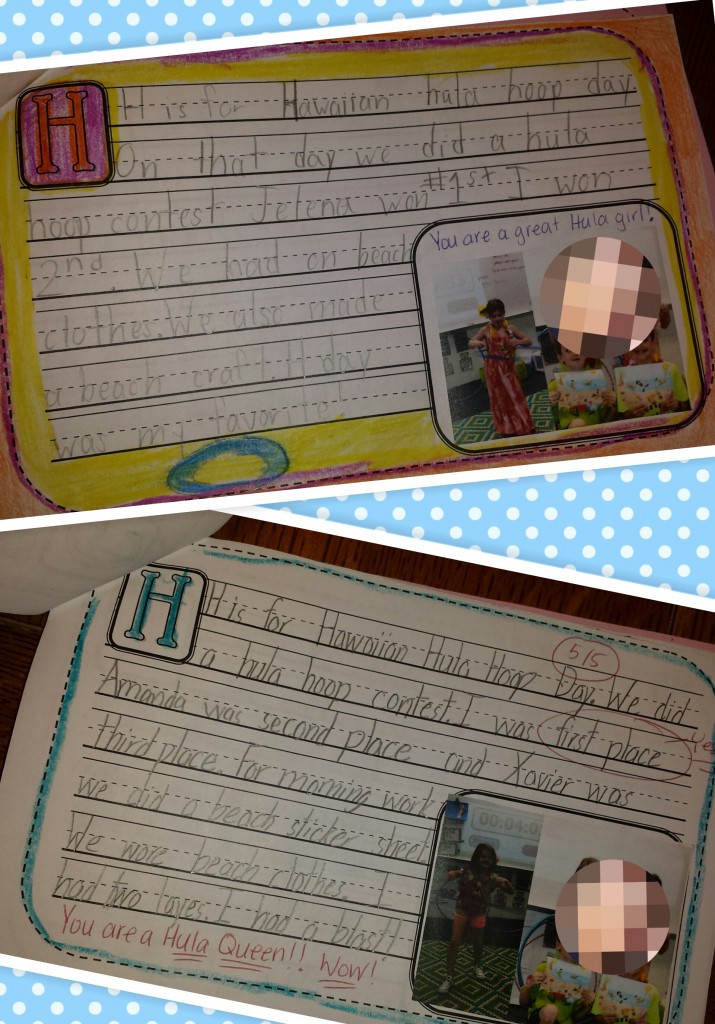 H
H is for Hawaiian hula hoop day.
On that day we did a hula
hoop contest Jelena won #1st I won
2nd. We had on beach
clothes. We also made
a beach craft. H day
was my favorite!
You are a great Hula girl!
H
H is for Hawaiian Hula Hoop Day. We did
5/5
a hula hoop contest. I was first place
Yes
Amanda was second place and Xavier was
third place. For morning work
we did a beach sticker sheet
We wore beach clothes. I
had two layes. I had a blast!
00:04:0
You are a Hula Queen!! Wow!